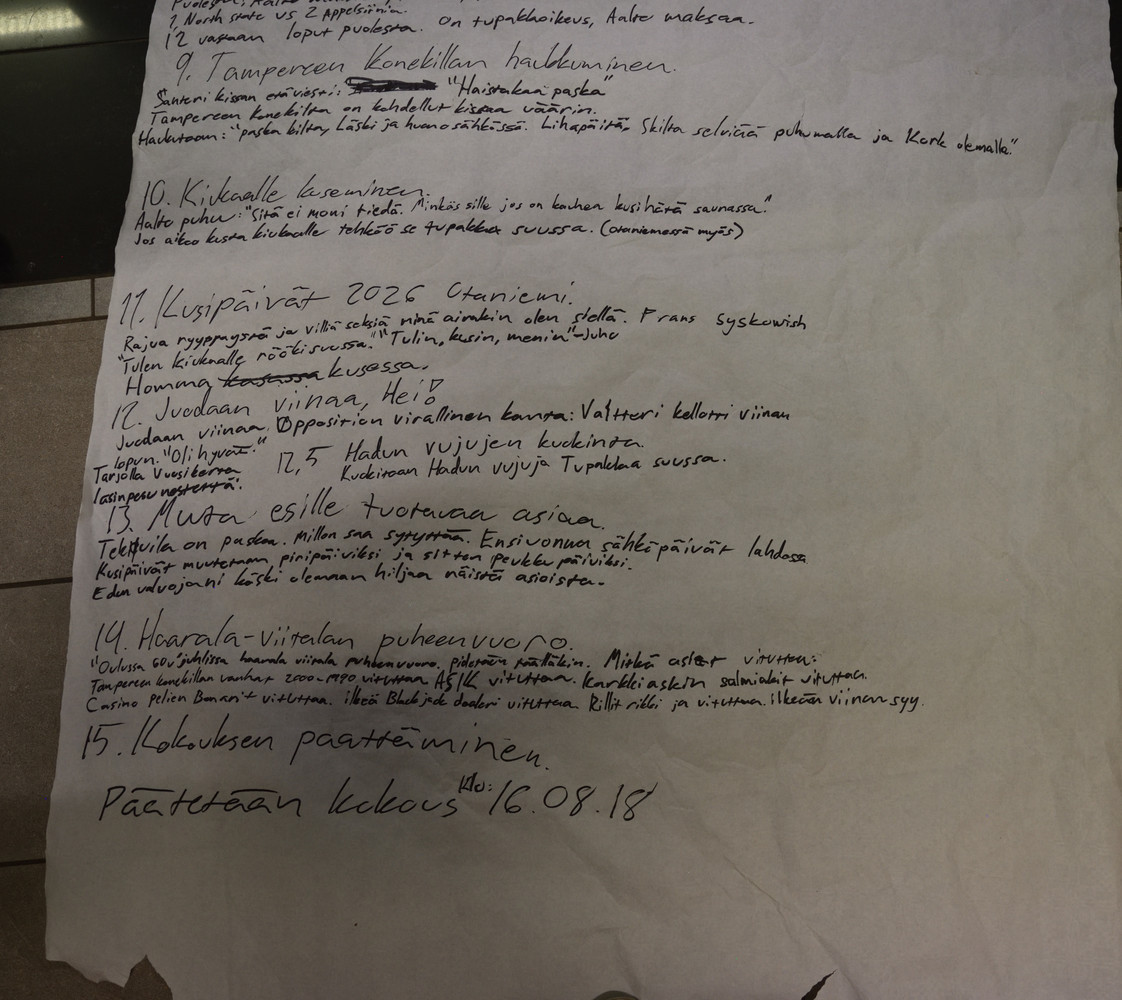 1 North state vs 2 Appelsiinia.
12 vastaan loput puolesta. On tupakkaoikeus, Aalto maksaa.
9. Tampereen Konekillan haukkuminen.
Santeri kissan etäviesti: "Haistakaa paska"
Tampereen konekilta on kohdellut kissaa väärin.
Haukutaan: "paska kilta, Läski ja huono sähkössä. Lihapäitä, Skilta selviää puhumalla ja Kork olemalla."
10. Kiukaalle kuseminen.
Aalto puhu: "Sitä ei moni tiedä. Minkäs sille jos on kauhea kusihätä saunassa."
Jos aikoo kusta kiukaalle tehköö se tupakka suussa. (otaniemessä myös)
11. Kusipäivät 2026 Otaniemi.
Rajua ryyppäystä ja villiä seksiä minä ainakin olen siellä. Frans syskowish
"Tulen kiukaalle rööki suussa." "Tulin, kusin, menin" -Juho
Homma kusessa.
12. Juodaan viinaa, Hei!
Juodaan viinaa. Opposition virallinen kanta: Valtteri kellotti viinan
lopun. "Oli hyvät."
Tarjolla Vuosikerta
lasinpesunestettä.
12,5 Hadun vujujen kuokinta.
Kuokitaan Hadun vujuja Tupakkaa suussa.
13. Muita esille tuotavaa asiaa.
Tekiila on paskaa. Millon saa sytyttää. Ensivonna sähköpäivät lahdossa
Kusipäivät muutetaan piripäiviksi ja sitten peukku päiviksi.
Edun valvojani käski olemaan hiljaa näistä asioista.
14. Haarala-viitalan puheenvuoro.
"Oulussa 60v juhlissa haarala viitala puheenvuoro. pidetään täälläkin. Mitkä asiat vituttaa:
Tampereen konekillan vanhat 2000-1990 vituttaa AS/K vituttaa. karkkiaskin salmiakit vituttaa.
Casino pelien Bonarit vituttaa. ilkeä Blackjack dealeri vituttaa. Rillit rikki ja vituttaa. ilkeän viinan syy.
15. Kokouksen päättäminen.
Päätetään kokous klo: 16.08.18